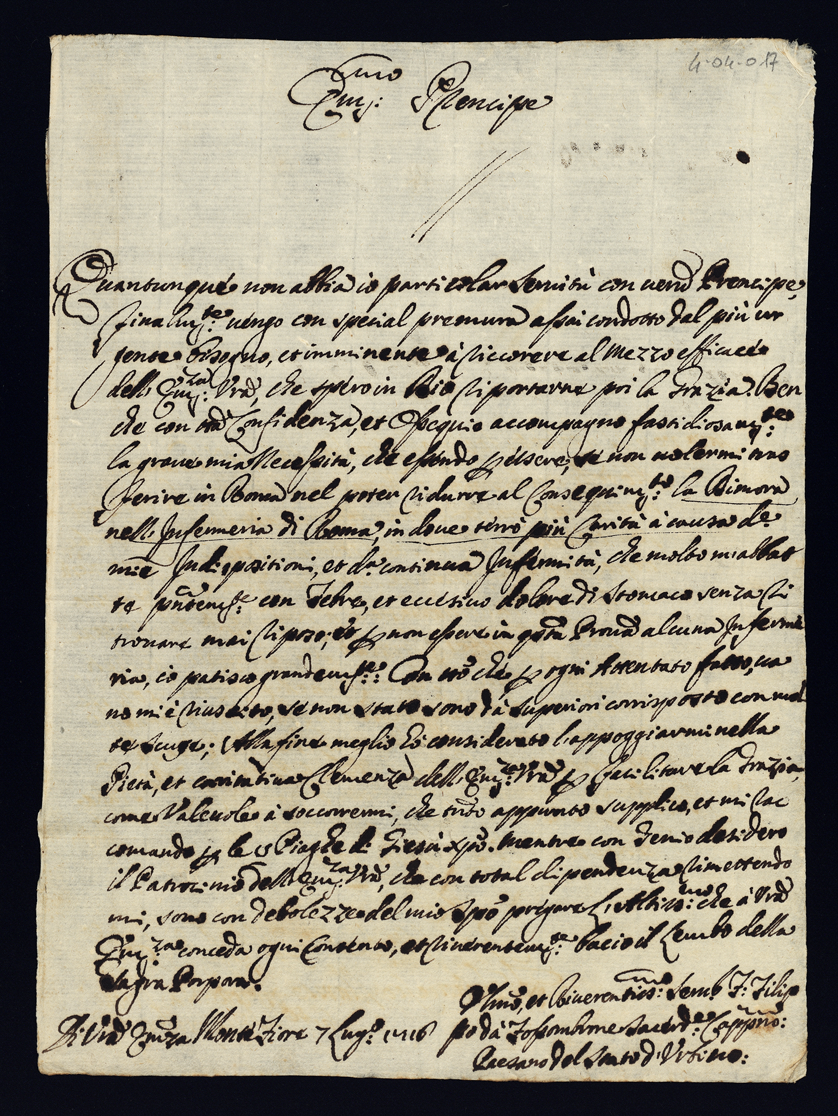 4-04-017
Em:mo Prencipe
Quantunque non abbia io particolar servitù con verũ Prencipe,
finalm:te vengo con special premura assai condotto dal più ur
gente bisogno, et imminente à riccorere al mezzo efficace
dell' Em:za Vrã, che spero in Dio riportarne poi la Grazia. Ben
che con tal Confidenza, et Ossequio accompagno fastidiosam:te
la grave mia Necessità, che essendo
ferire in Roma nel poter ridurre al Conseguim:to la Dimora
nell' Infermeria di Roma, in dove terrò più Carità à causa de
mie Indispositioni, et da continua Infermità, che molto m'abbat
te pñtem:te con Febre, et eccessivo dolore di stomaco senza ri
trovare mai riposo, et p non essere in qsta Provã alcuna Inferme
ria, io patisco grandem:te. Con tutto che p ogni Attentato fatto, va
no mi è riuscito, se non stato sono da superiori corrisposto con mol
te scuse; Alla fine meglio hò considerato l'appoggiarmi nella
Pietà, et caritativa Clemenza dell' Em:za Vrã p facilitare la Grazia,
come Valevole à soccorrermi, che tutto appunto supplico, et mi rac
comando p le Piaghe di Giesù xpõ. Mentre con Genio desidero
il Patrocinio dell' Em:za Vrã, che con total dipendenza rimettendo
mi, sono con debolezza del mio Spõ pregare l'Altiss:mo che à Vrã
Em:za conceda ogni Contento, et riverentem:te bacio il Lembo della
sagra Porpora.
Di Vrã Em:za Monte Fiore 7 Lug:o 1716
Umo, et Riverentiss:mo Serv:e F: Filip
po da Fossombrone Sacerd:te Capp:no:
Paesano del Stato d'Urbino: